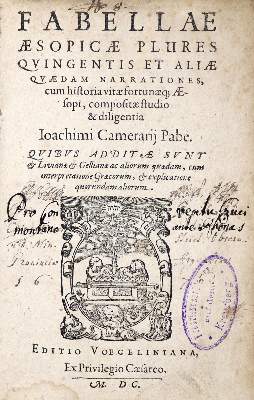 FABELLAE
ÆSOPICÆ PLURES
QVINGENTIS ET ALIÆ
QVÆDAM NARRATIONES,
cum historia vitæ fortunæq; Æ-
sopi, compositæ studio
& diligentia
Ioachimi Camerarij Pabe.
QVIBVS ADDITÆ SVNT
& Livianæ & Gellianæ ac aliorum quædam, cum
interpretatione Græcorum, & explicatione
quorundam aliorum.
Pro Con
montano
EDITIO VOEGELINIANA,
Ex Privilegio Cæsareo.
M. DC.